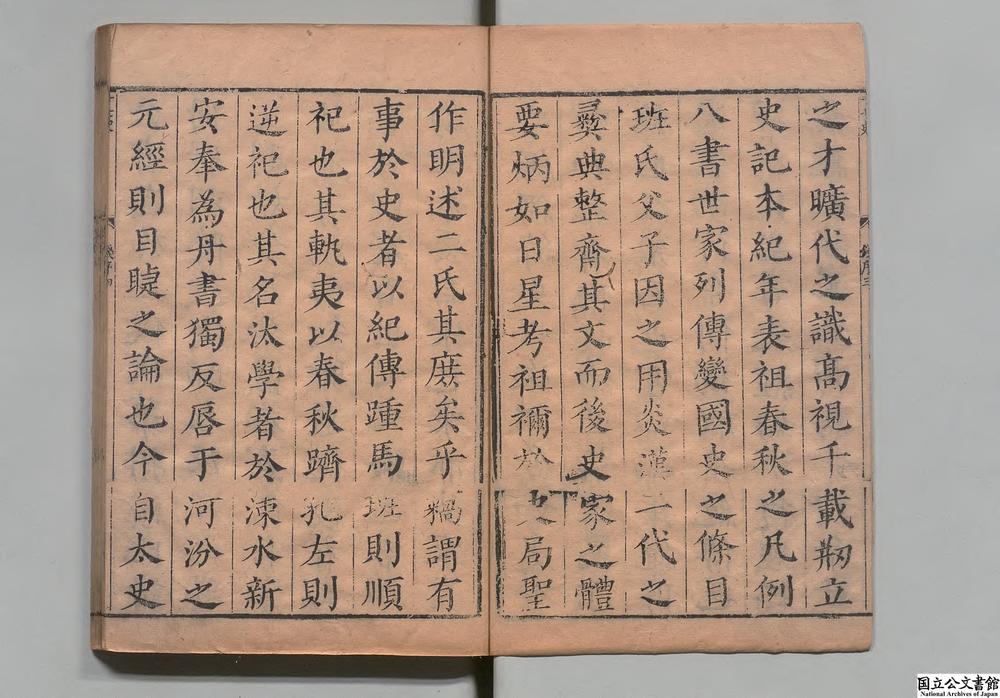 之才曠代之識高視千載刱立
史記本紀年表祖春秋之凡例
八書世家列傳變國史之條目
班氏父子因之用炎漢二代之
彝典整齊其文而後史家之體
要炳如日星考祖禰於史局聖
作明述二氏其庶矣乎竊謂有
事於史者以紀傳踵馬班則順
祀也其軌夷以春秋躋孔左則
逆祀也其名汰學者於涑水新
安奉為丹書獨反唇于河汾之
元經則目睫之論也今自太史
国立公文書館
National Archives of Japan